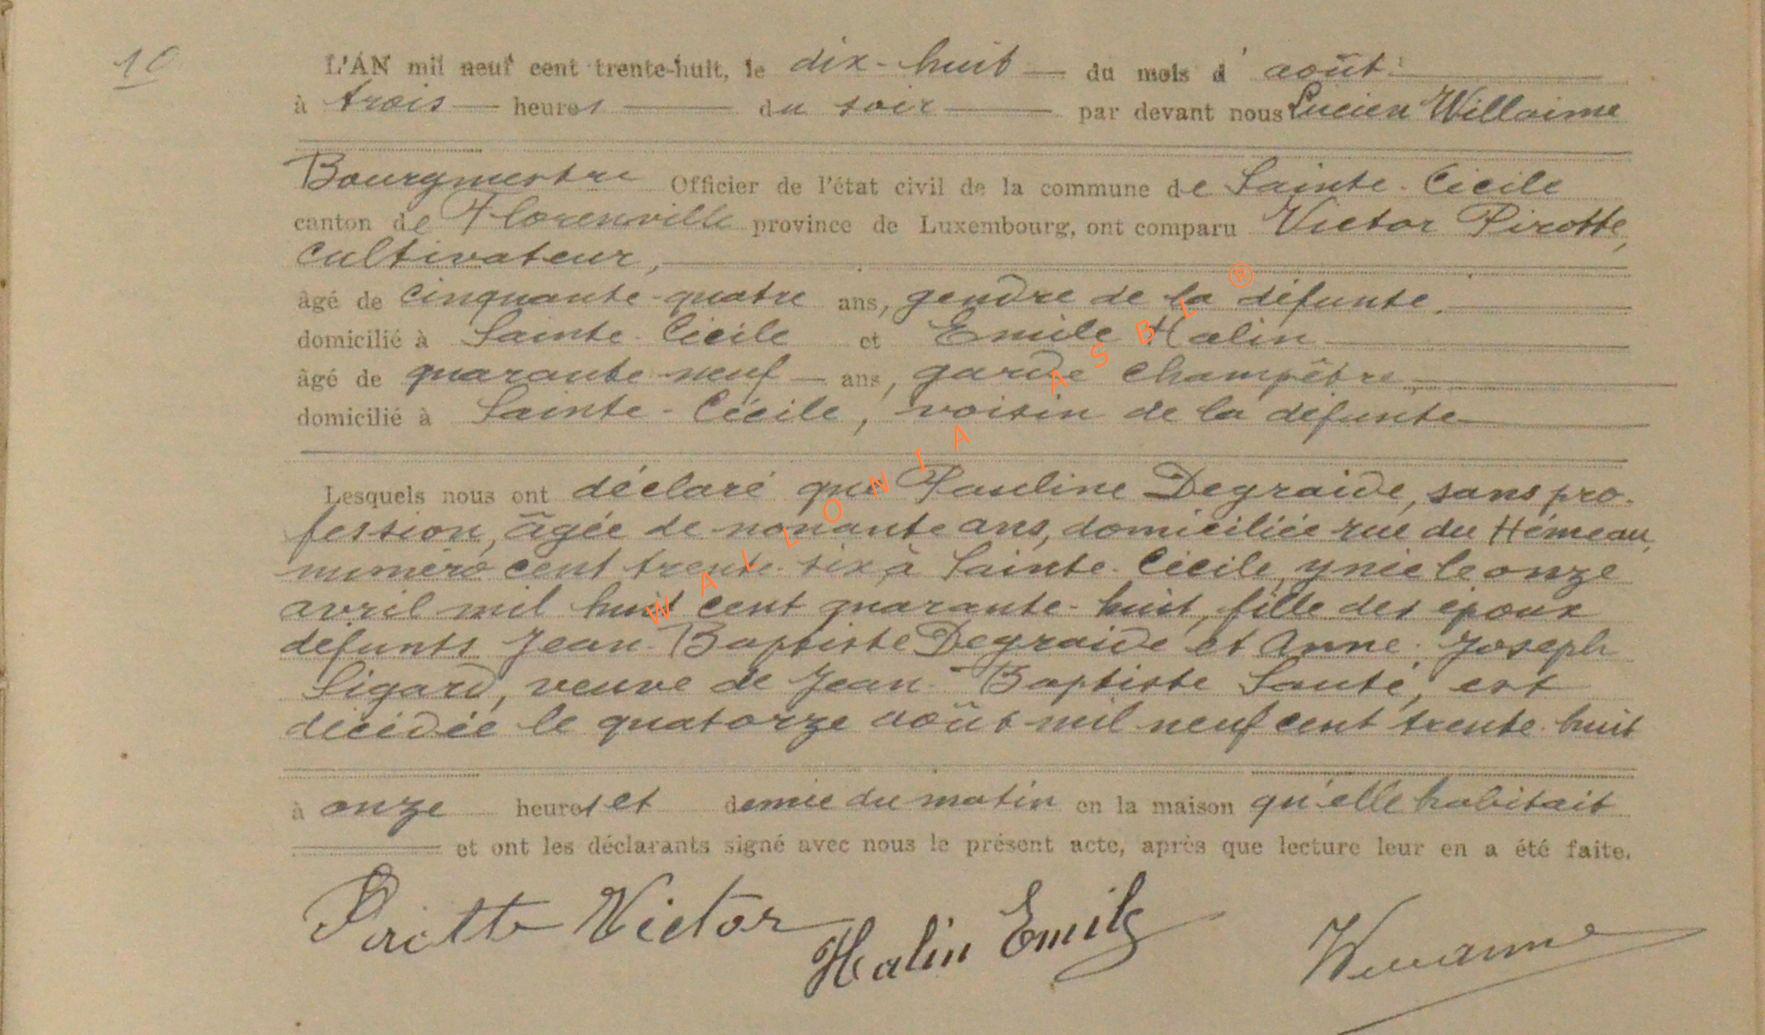 10
L'AN mil neuf cent trente-huit, le dix-huit du mois d'août
à trois heures du soir par devant nous Lucien Willaime
Bourgmestre Officier de l'état civil de la commune de Sainte-Cécile
canton de Florenville province de Luxembourg, ont comparu Victor Pirotte,
cultivateur,
âgé de cinquante-quatre ans, gendre de la défunte.
domicilié à Sainte-Cécile et Emile Halin
âgé de quarante neuf ans, garde champêtre,
domicilié à Sainte-Cécile, voisin de la défunte
Lesquels nous ont déclaré que Pauline Degraide, sans pro-
fession, âgée de nonante ans, domiciliée rue du Hémeau,
numéro cent trente-six à Sainte-Cécile, y née le onze
avril mil huit cent quarante-huit, fille des époux
défunts Jean-Baptiste Degraide et Anne-Joseph
Sigard, veuve de Jean-Baptiste Santé, est
décédée le quatorze août mil neuf cent trente-huit
à onze heures et demie du matin en la maison qu'elle habitait
et ont les déclarants signé avec nous le présent acte, après que lecture leur en a été faite.
Pirotte Victor Halin Emile
WALLONIA ASBL ®